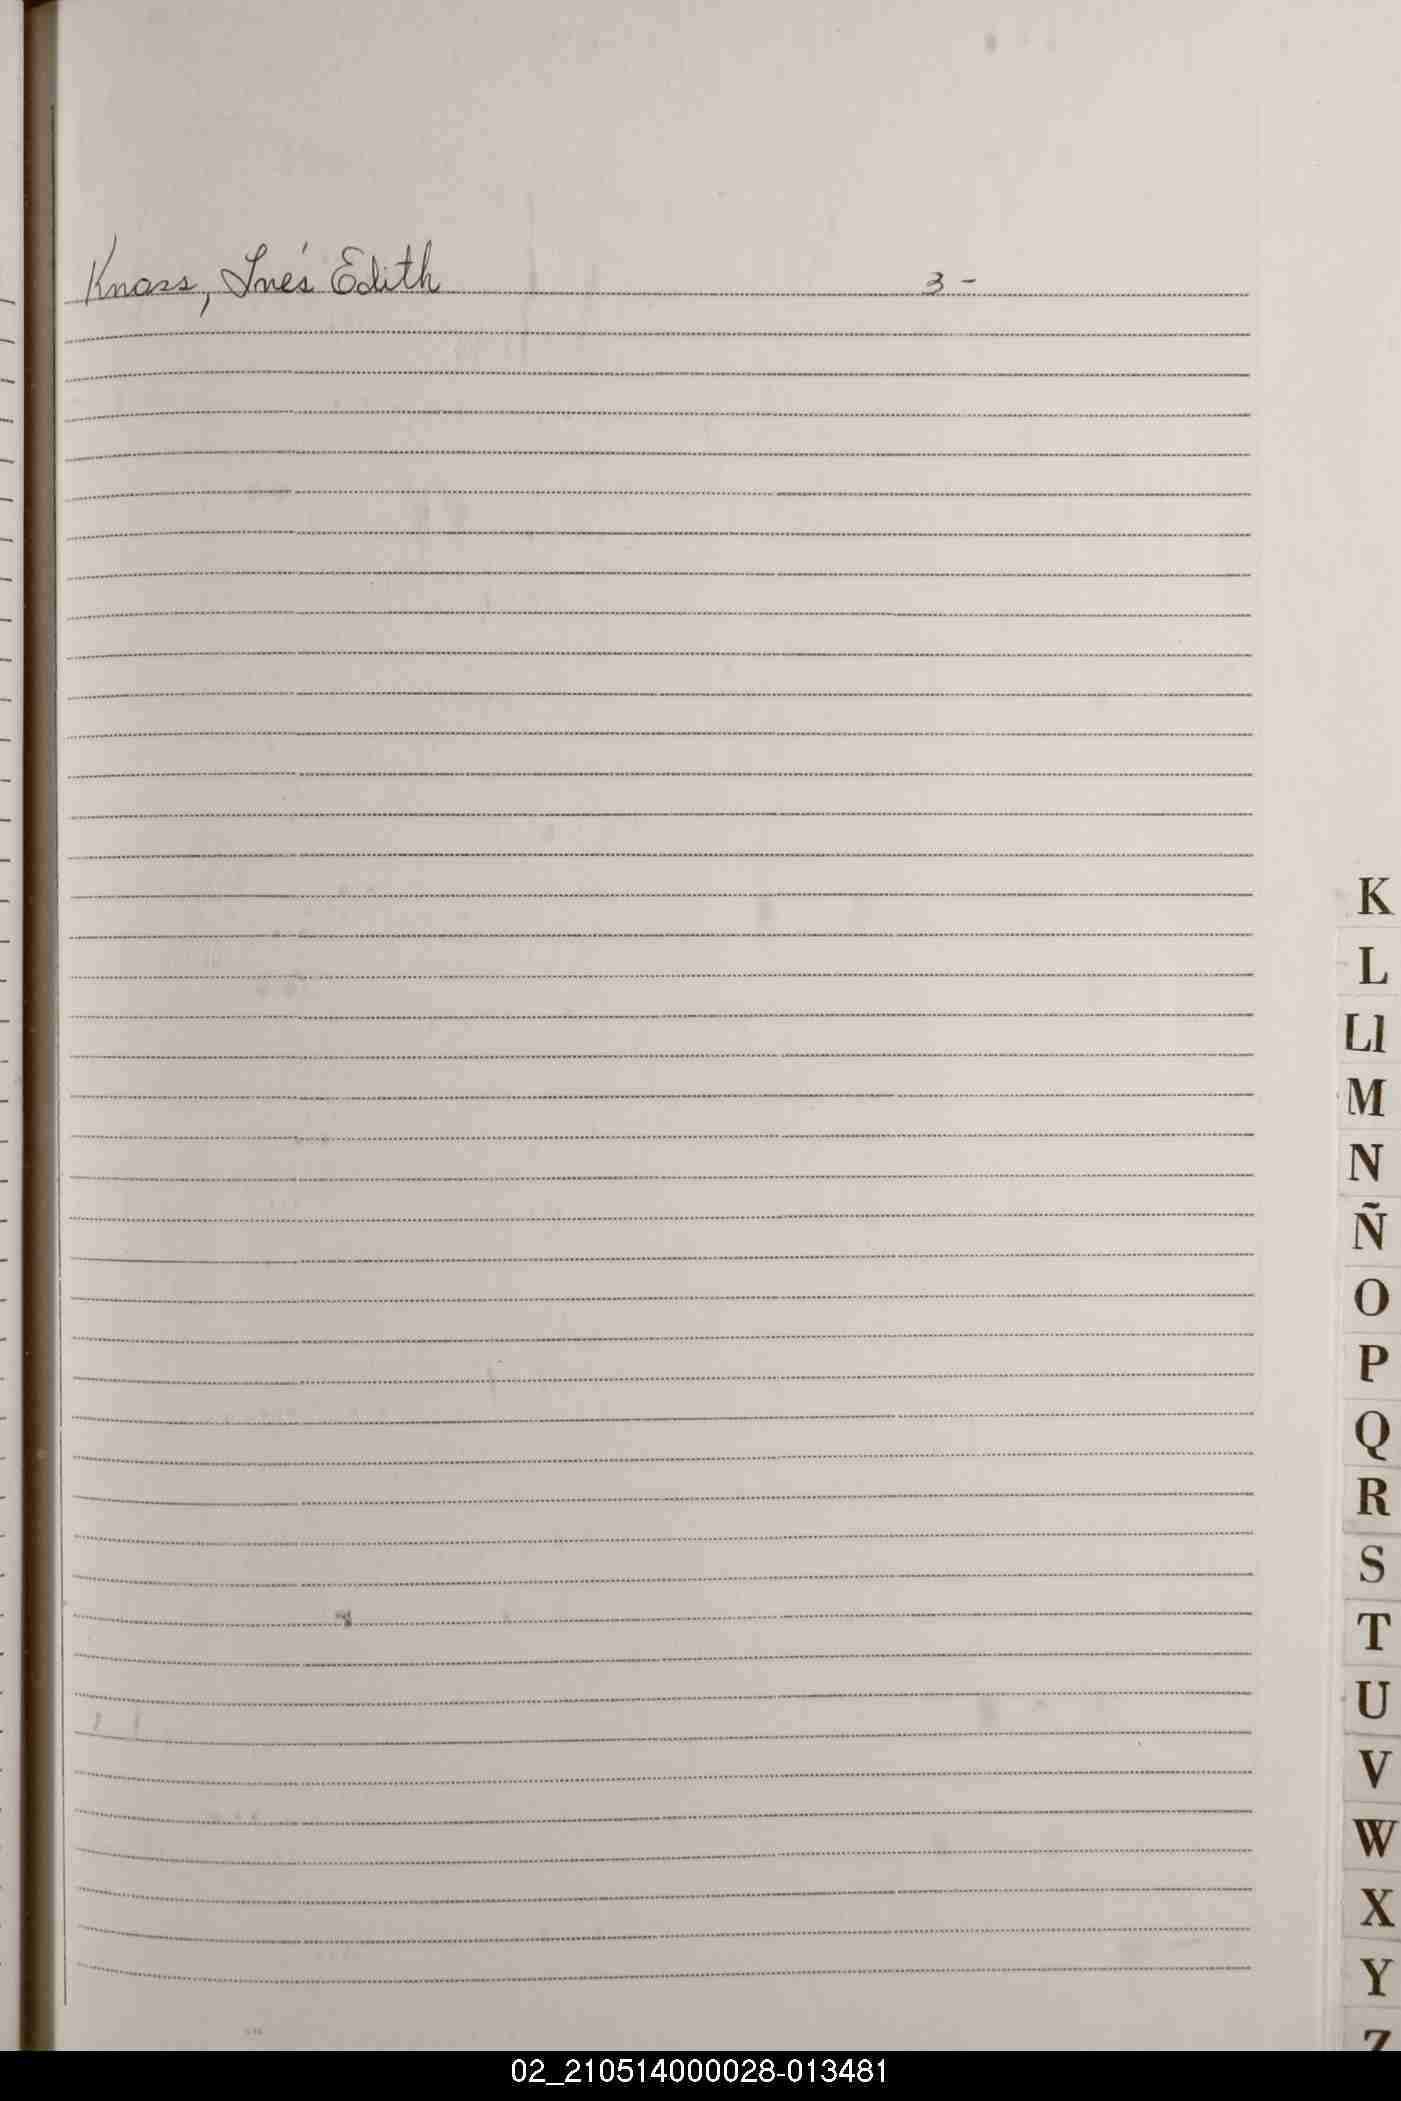 Knass, Inés Edith 3 -
K
L
Ll
M
N
Ñ
O
P
Q
R
S
T
U
V
W
X
Y
Z
02_210514000028-013481